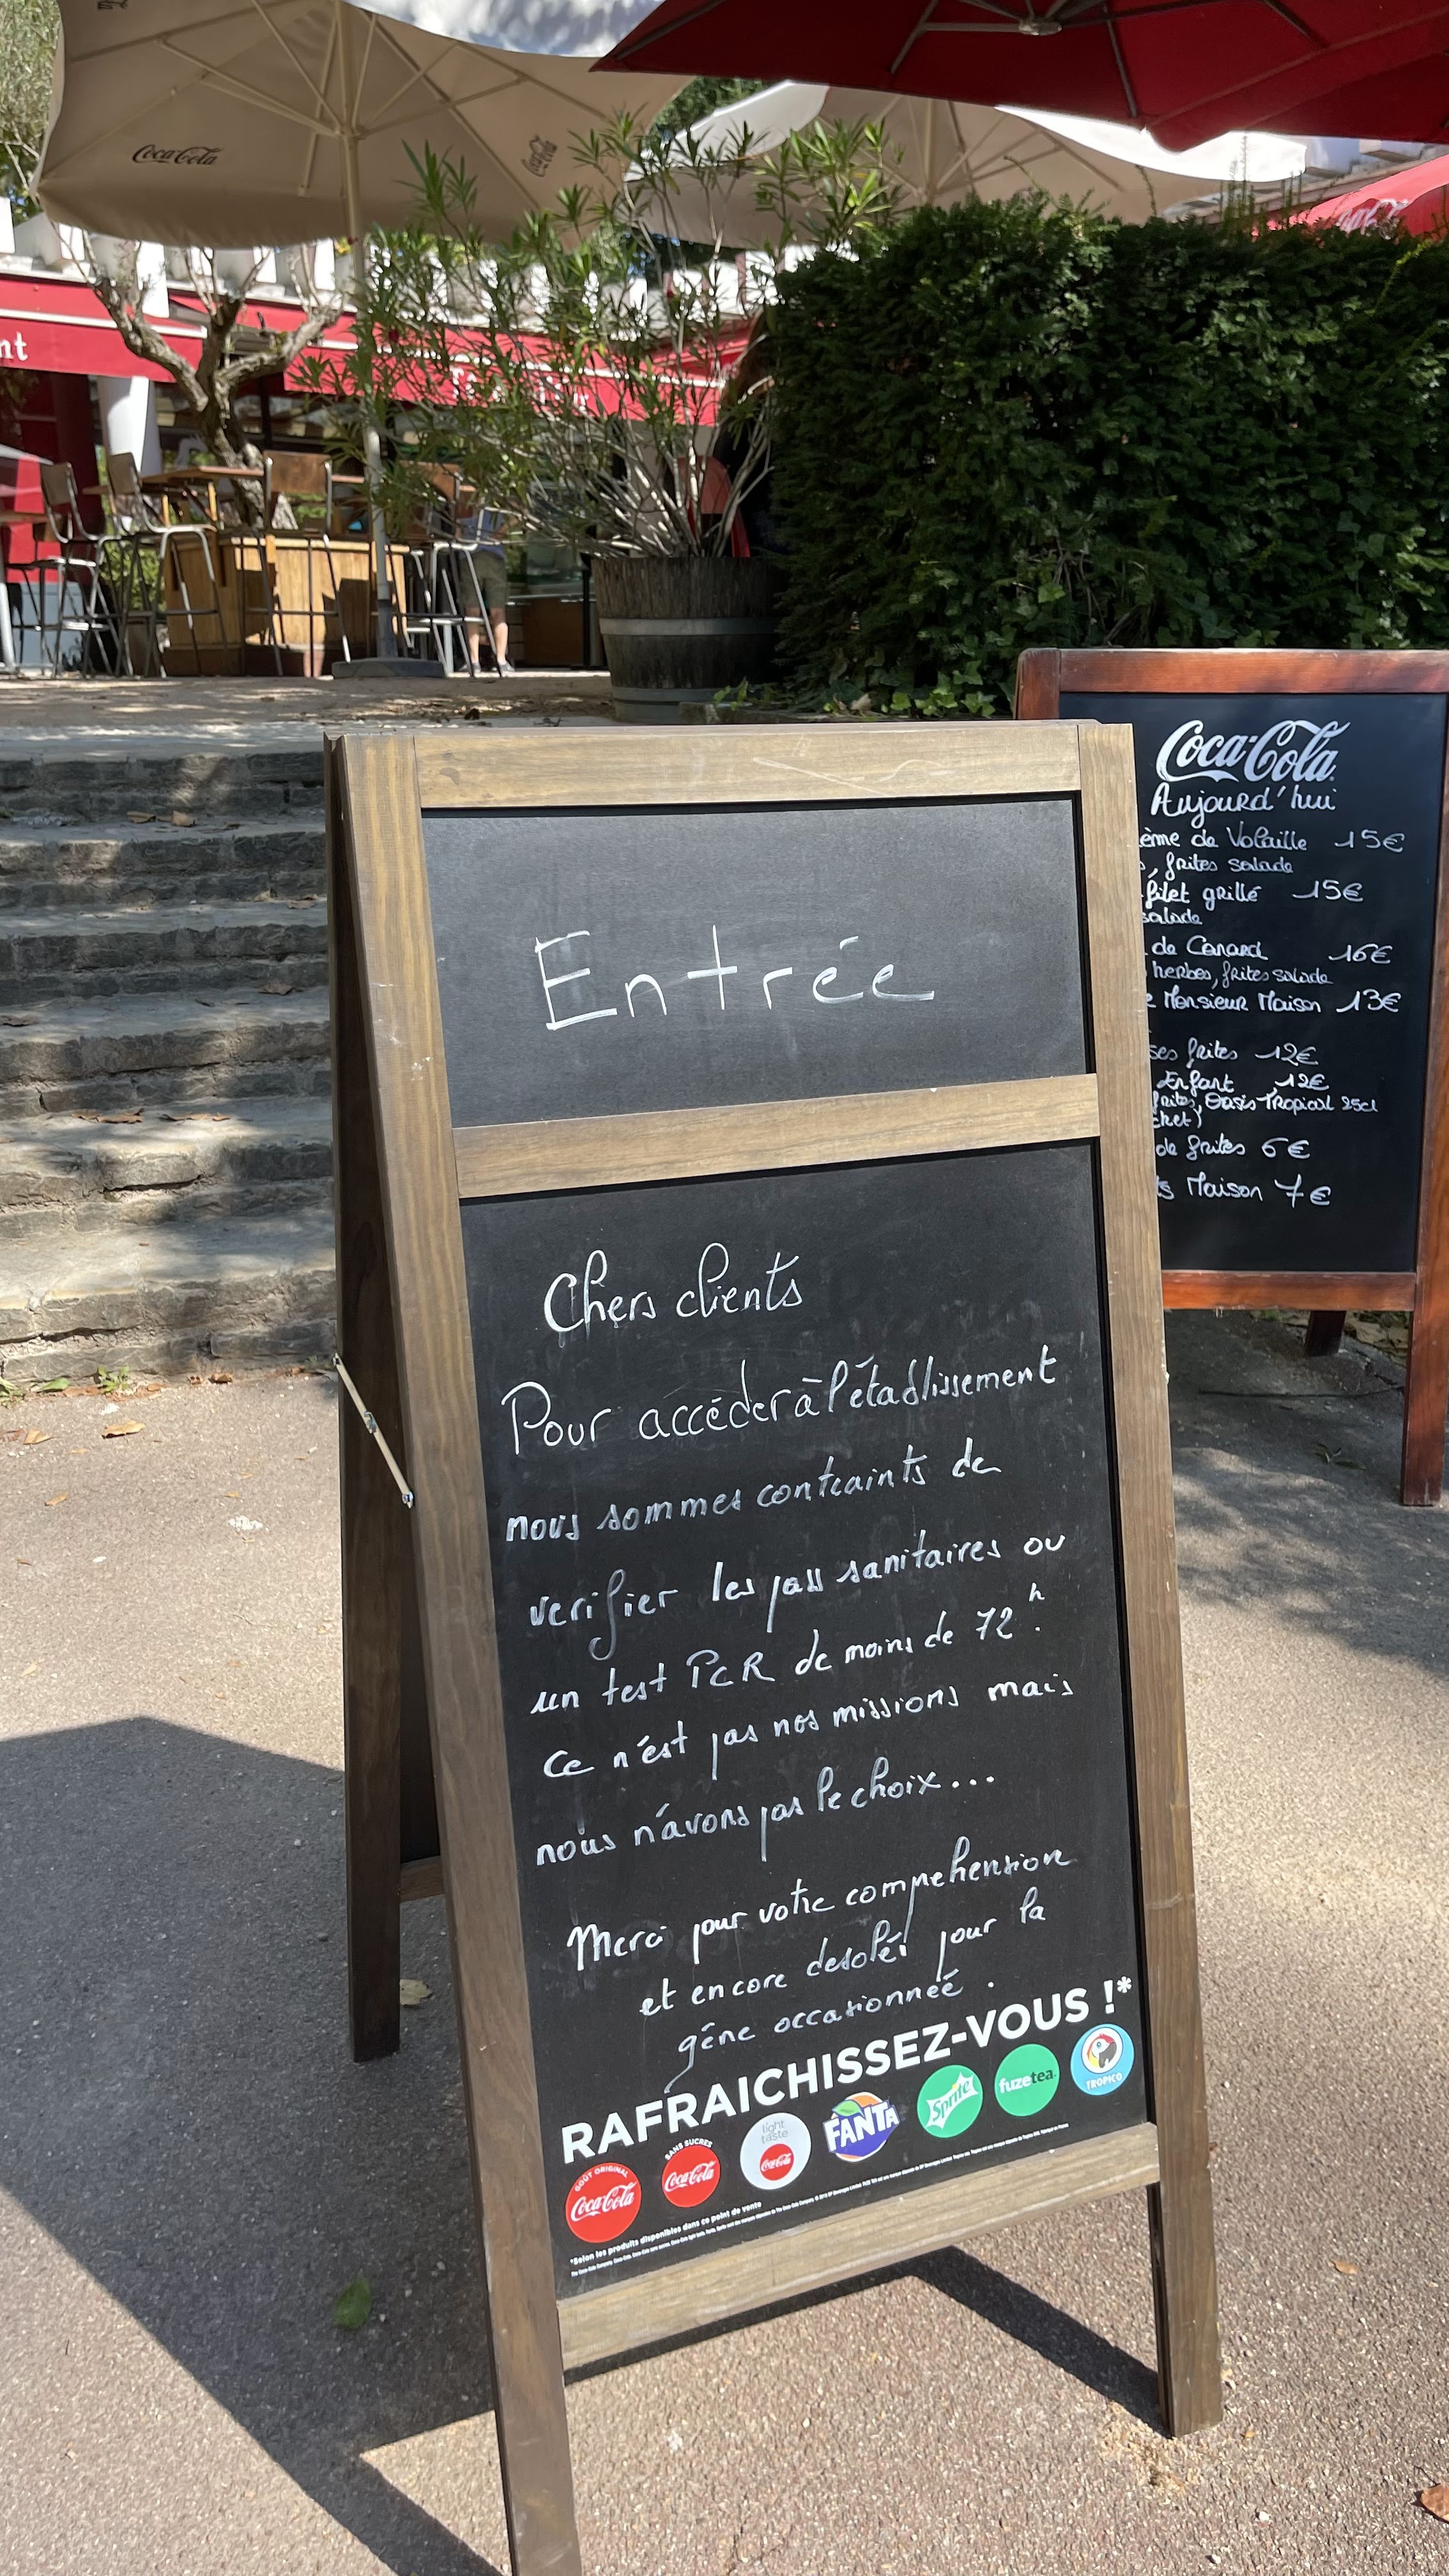 Coca-Cola
Coca-Cola
nt
Entrée
Chers clients
Pour accéder à l'établissement
nous sommes contraints de
verifier les pass sanitaires ou
un test PCR de moins de 72h.
Ce n'est pas nos missions mais
nous n'avons pas le choix...
Merci pour votre comprehension
et encore desolés pour la
gêne occasionneé.
RAFRAICHISSEZ-VOUS !*
GOÛT ORIGINAL
Coca-Cola
SANS SUCRES
Coca-Cola
light
taste
Coca-Cola
FANTA
Sprite
fuzetea
TROPICO
*Selon les produits disponibles dans ce point de vente
Coca-Cola
Aujourd'hui
ème de Volaille 15€
, frites salade
filet grillé 15€
salade
de Canard 16€
herbes, frites salade
Monsieur Maison 13€
ses frites 12€
Enfant 12€
frites, Oasis Tropical 25cl
chet)
de frites 6€
ts Maison 7€